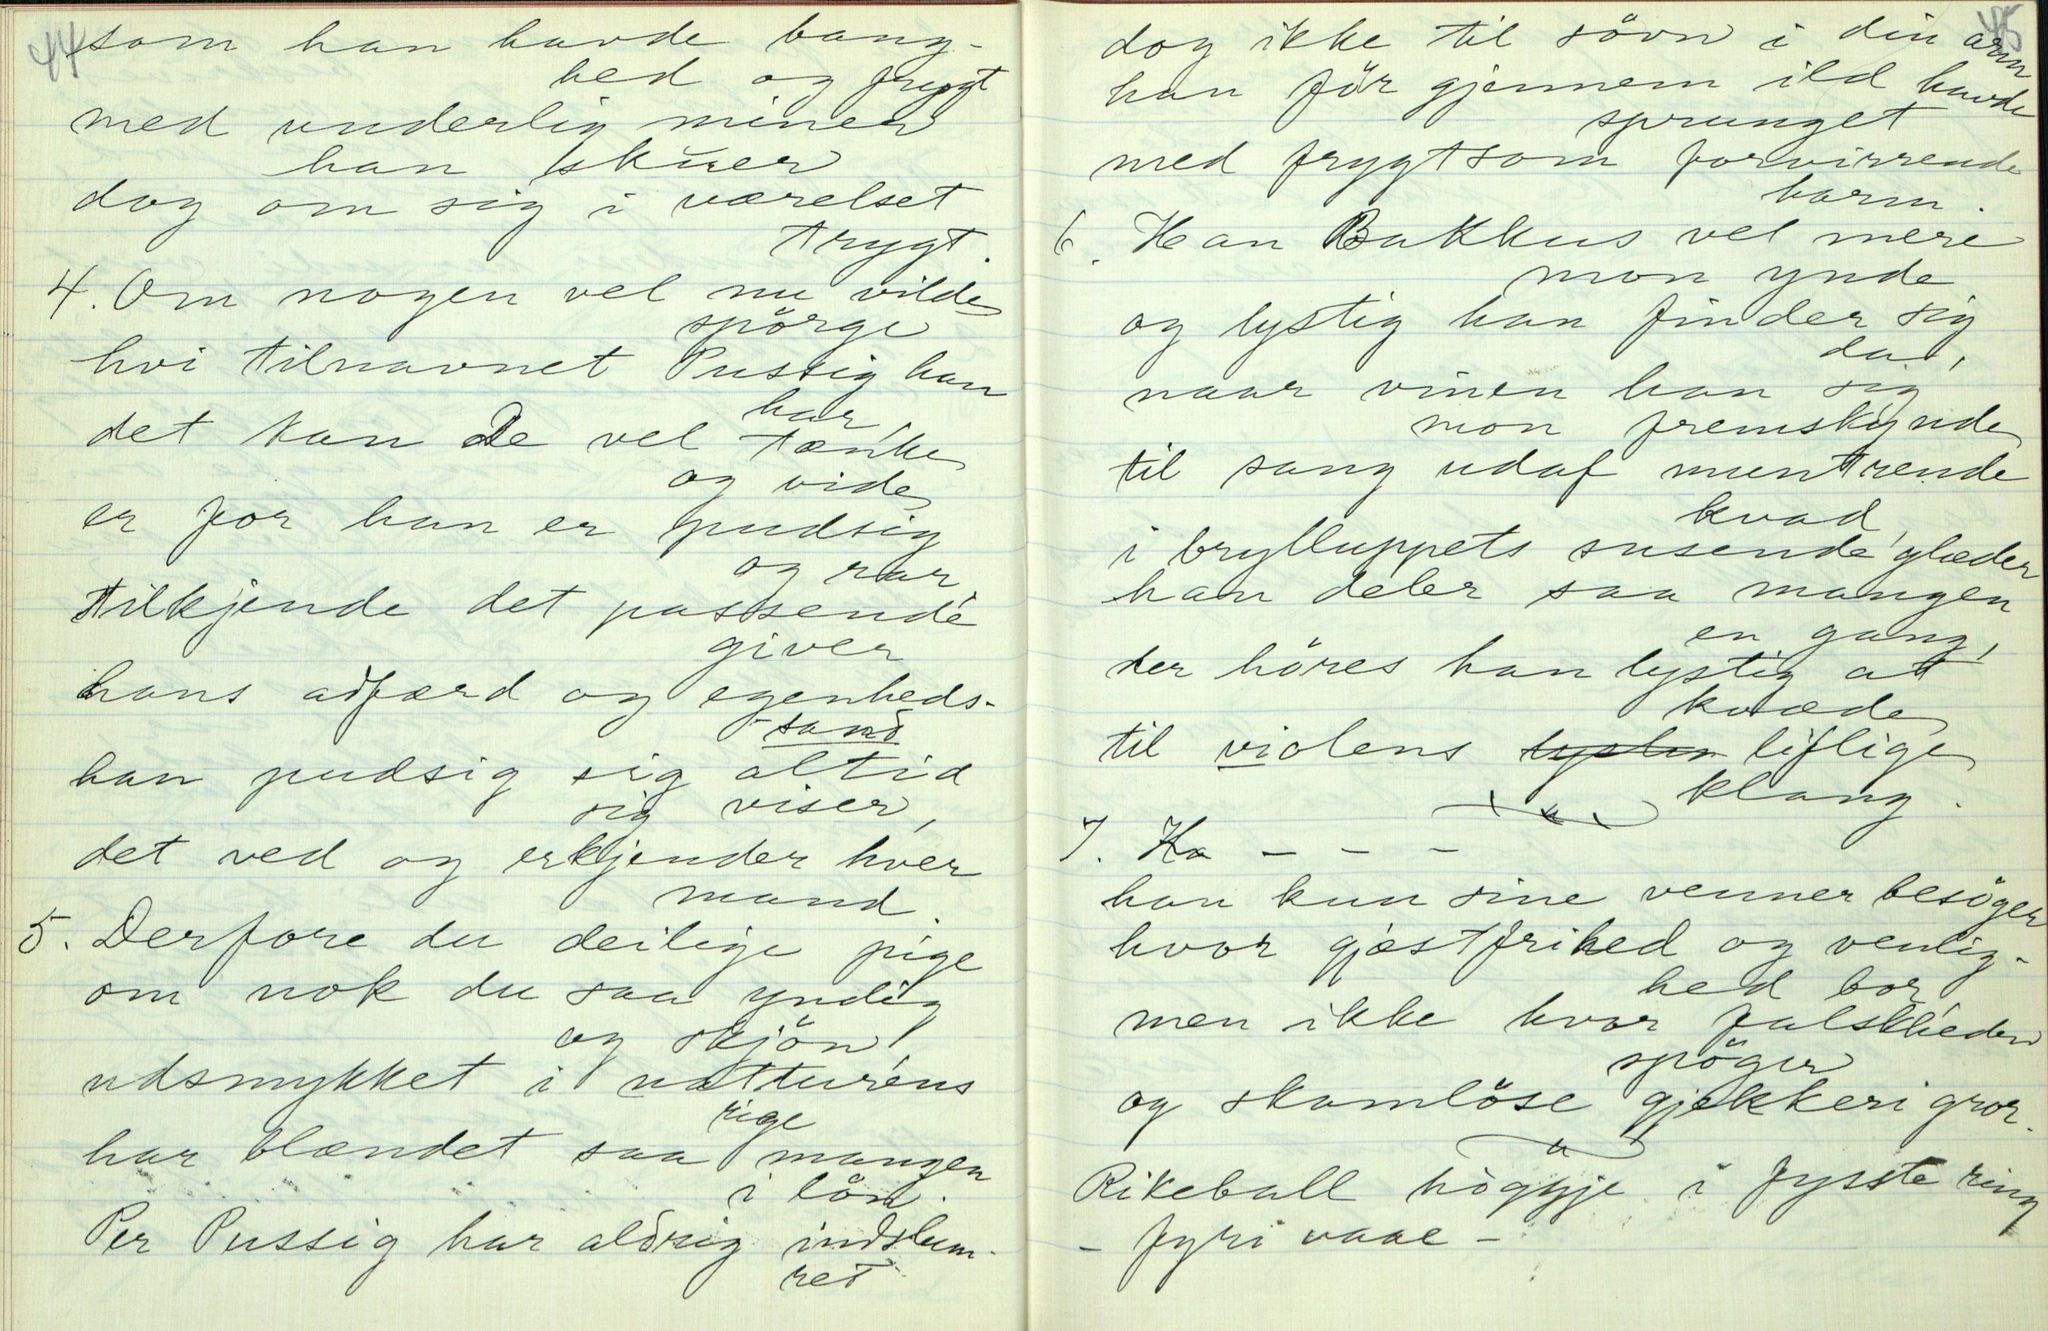 44
som han havde bang-
hed og frygt
med underlig miner
han skuer
dog om sig i værelset
trygt.
4. Om nogen vel nu vilde
spörge
hvi tilnavnet Pussig han
har,
det kan De vel tænke
og vide
er for han er pudsig
og rar,
tilkjende det passende
giver
hans adfærd og egenheds-
-sand
han pudsig sig altid
sig viser,
det ved og erkjender hver
mand.
5. Derfore du deilige pige
om nok du saa yndig
og skjön,
udsmykket i natturens
rige
har blændet saa mangen
i lön.
Per Pussig har aldrig indslum-
ret
45
dog ikke til sövn i din arm
han för gjennem ild havde
sprunget
med frygtsom forvirrende
barm.
6. Han Bakkus vel mere
mon ynde
og lystig han finder sig
da,
naar vinen han sig
mon fremskynde
til sang udaf muntrende
kvad,
i brylluppets susende glæder
han deler saa mangen
en gang,
der höres han lystig at
kvæde
til violens liflige
klang.
7. Ha - - -
han kun sine venner besöger
hvor gjæstfrihed og venlig-
hed bor,
men ikke hvor falskheden
spöger
og skamlöse gjekkeri gror.
Rikeball höggje i fysste ring
- fyri vaae -